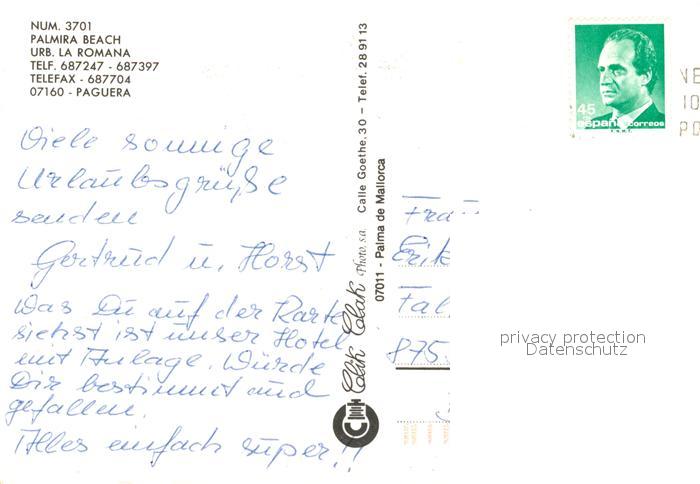 NUM. 3701
PALMIRA BEACH
URB. LA ROMANA
TELF. 687247 - 687397
TELEFAX - 687704
07160 - PAGUERA
Viele sonnige
Urlaubsgrüße
senden
Gertrud u. Horst
Was Du auf der Karte
siehst ist unser Hotel
mit Anlage. Würde
Dir bestimmt auch
gefallen.
Alles einfach super!!
Clik Clak Photo, s.a. Calle Goethe, 30 – Telef. 28 91 13
07011 - Palma de Mallorca
45
españa correos
F.N.M.T.
NE
10
PO
Frau
Erik
Fal
875
privacy protection
Datenschutz